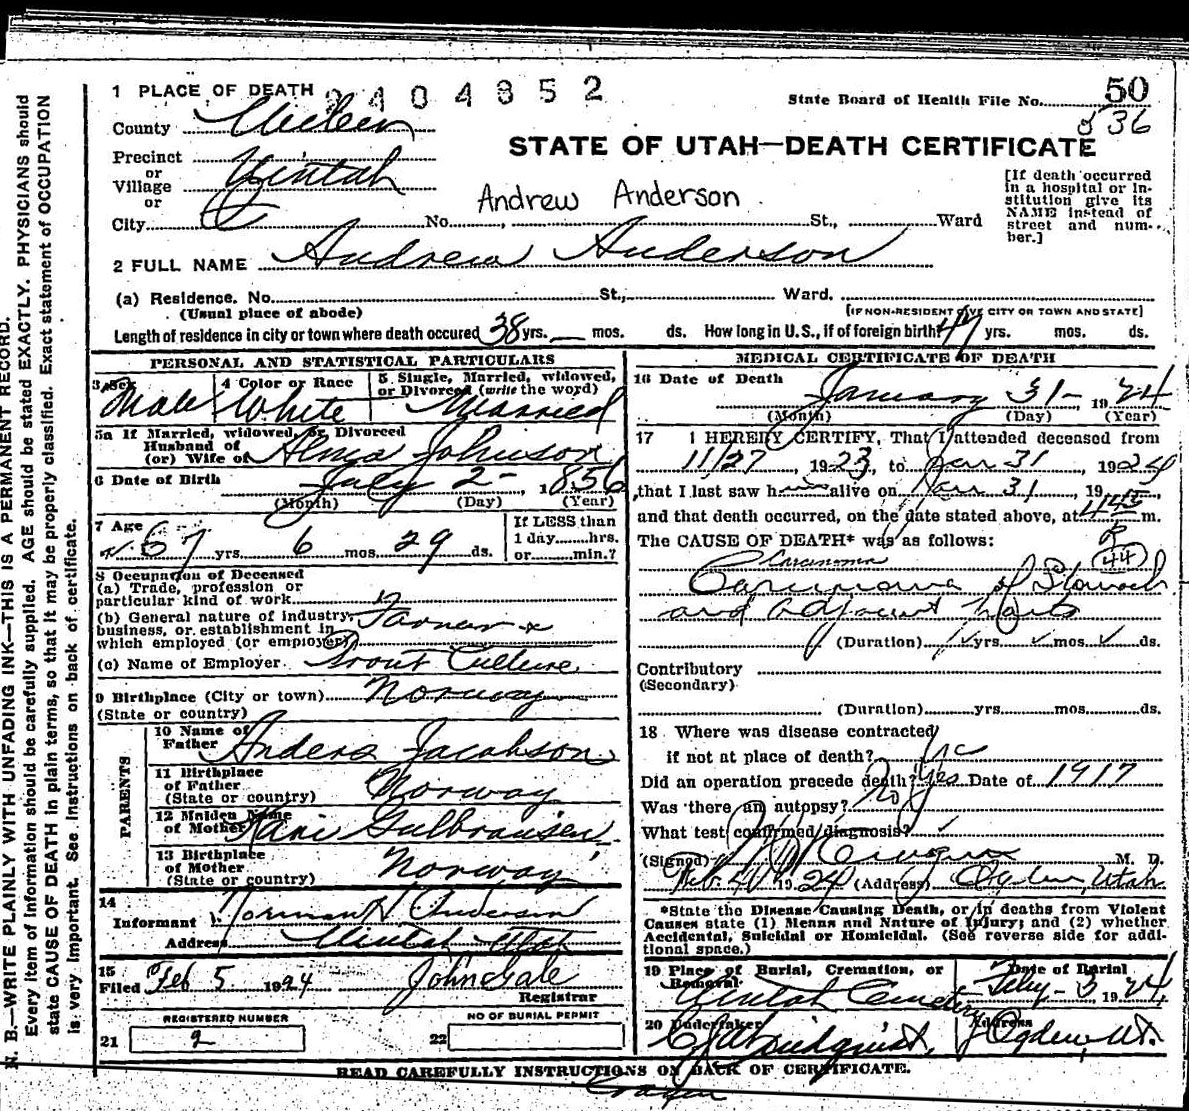 N. B.—WRITE PLAINLY WITH UNFADING INK—THIS IS A PERMANENT RECORD.
Every item of information should be carefully supplied. AGE should be stated EXACTLY. PHYSICIANS should
state CAUSE OF DEATH in plain terms, so that it may be properly classified. Exact statement of OCCUPATION
is very important. See instructions on back of certificate.
1 PLACE OF DEATH 2404852
State Board of Health File No. 50
536
County
STATE OF UTAH—DEATH CERTIFICATE
Precinct
or
Village Uintah
or
City No. St., Ward
Andrew Anderson
[If death occurred
in a hospital or In-
stitution give its
NAME instead of
street and num-
ber.]
2 FULL NAME Andrew Anderson
(a) Residence. No. St., Ward.
(Usual place of abode) [IF NON-RESIDENT GIVE CITY OR TOWN AND STATE]
Length of residence in city or town where death occured 38 yrs. — mos. ds. How long in U.S., if of foreign birth? 47 yrs. mos. ds.
PERSONAL AND STATISTICAL PARTICULARS
3 Sex Male
4 Color or Race White
5 Single, Married, widowed,
or Divorced (write the word) Married
5a If Married, widowed, or Divorced
Husband of
(or) Wife of Johnson
6 Date of Birth July 2 - , 1856
(Month) (Day) (Year)
7 Age 67 yrs. 6 mos. 29 ds.
If LESS than
1 day hrs.
or min.?
8 Occupation of Deceased
(a) Trade, profession or
particular kind of work
(b) General nature of industry,
business, or establishment in
which employed (or employer) Farmer &
(c) Name of Employer Trout Culture
9 Birthplace (City or town) Norway
(State or country)
PARENTS
10 Name of
Father Anders Jacobson
11 Birthplace
of Father
(State or country) Norway
12 Maiden Name
of Mother Kari Gulbransen
13 Birthplace
of Mother
(State or country) Norway
14
Informant Norman H Anderson
Address Uintah Utah
15
Filed Feb 5 1924 John Gale
Registrar
REGISTERED NUMBER
21 2
NO OF BURIAL PERMIT
22
MEDICAL CERTIFICATE OF DEATH
16 Date of Death January 31 - 1924
(Month) (Day) (Year)
17 I HEREBY CERTIFY, That I attended deceased from
11/27, 1923, to Jan 31, 1924
that I last saw h alive on Jan 31, 19
and that death occurred, on the date stated above, at 445 m.
P
The CAUSE OF DEATH* was as follows:
44
Carcinoma
Carcinoma of Stomach
and adjacent parts
(Duration) 1 yrs. mos. ds.
Contributory
(Secondary)
(Duration) yrs. mos. ds.
18 Where was disease contracted
if not at place of death?
Did an operation precede death? Yes Date of 1917
Was there an autopsy? No
What test confirmed diagnosis?
(Signed) M. D.
Feb. 1924 (Address) Ogden, Utah
*State the Disease Causing Death, or in deaths from Violent
Causes state (1) Means and Nature of Injury; and (2) whether
Accidental, Suicidal or Homicidal. (See reverse side for addi-
tional space.)
19 Place of Burial, Cremation, or
Removal Uintah Cemetery
Date of Burial
Feby - 3 1924
20 Undertaker Lindquist,
Address Ogden, Ut.
READ CAREFULLY INSTRUCTIONS ON BACK OF CERTIFICATE.